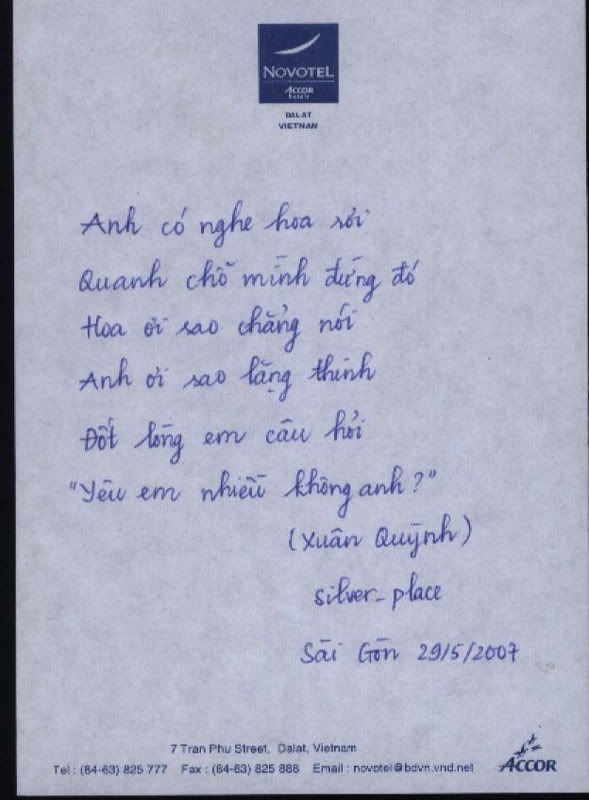 NOVOTEL
ACCOR
hotels
DALAT
VIETNAM
Anh có nghe hoa rơi
Quanh chỗ mình đứng đó
Hoa ơi sao chẳng nói
Anh ơi sao lặng thinh
Đốt lòng em câu hỏi
"Yêu em nhiều không anh?"
(Xuân Quỳnh)
silver_place
Sài Gòn 29/5/2007
7 Tran Phu Street, Dalat, Vietnam
Tel : (84-63) 825 777 Fax : (84-63) 825 888 Email : novotel@bdvn.vnd.net
ACCOR